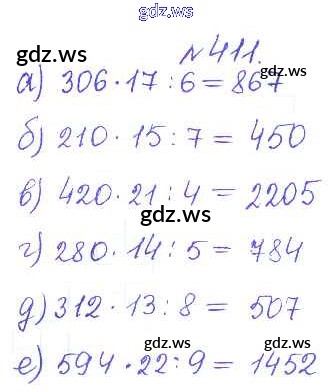 gdz.ws
gdz.ws
№411.
gdz.ws
а) 306·17:6=867
б) 210·15:7=450
в) 420·21:4=2205
gdz.ws
г) 280·14:5=784
д) 312·13:8=507
gdz.ws
е) 594·22:9=1452
gdz.ws